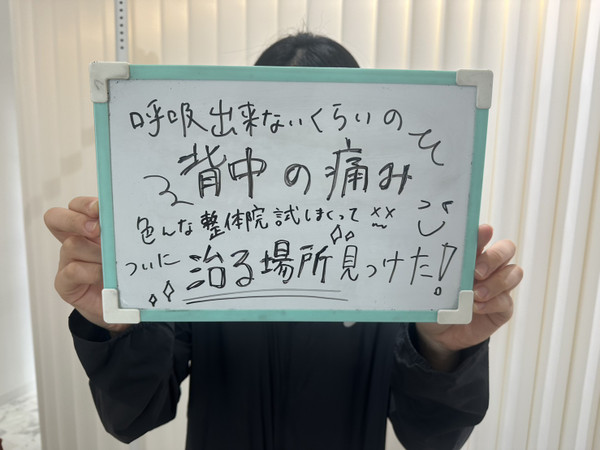 呼吸出来ないくらいの
背中の痛み
色んな整体院試しまくって××
ついに治る場所見つけた!